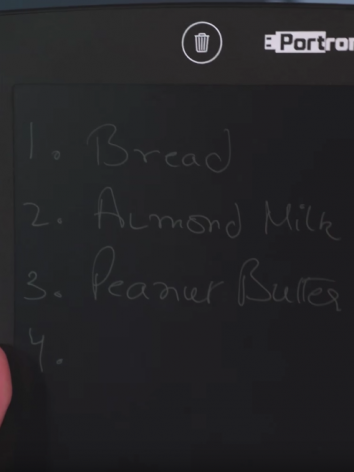 Portron
1. Bread
2. Almond Milk
3. Peanut Butter
4.